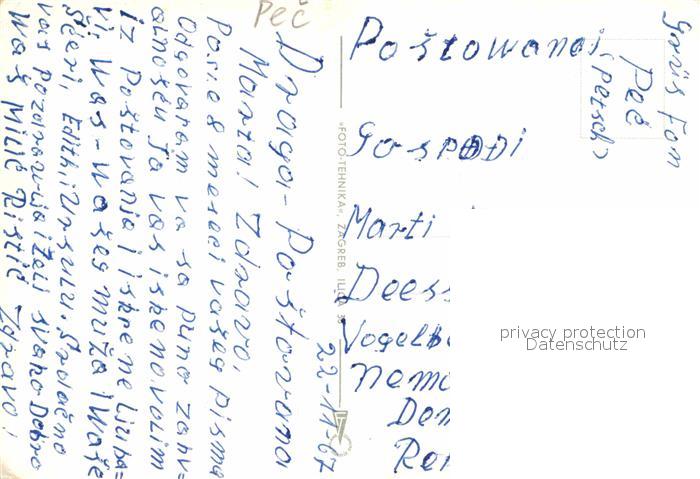 Peč
22-11-67
Draga-Poštovana
Marta! Zdravo,
Posie 8 meseci vašeg pisma
Odgovaram va sa puno zahv=
alnošću Ja vas iskeno volim
iz Poštovanja i iskrene Ljuba=
vi. Was-Wašeg muža i Waše
šćeri, Edith, i Ursulu. Srdačno
vas pozdravlja i Želi svako Dobro
Waš Milić Ristić Zdravo!
"FOTO-TEHNIKA", ZAGREB, ILICA
Poštowanoj
Gospođi
Marti
Deess
Vogelb
Nemo
Den
Rem
Grüs fon
Peć
(Petsch)
privacy protection
Datenschutz